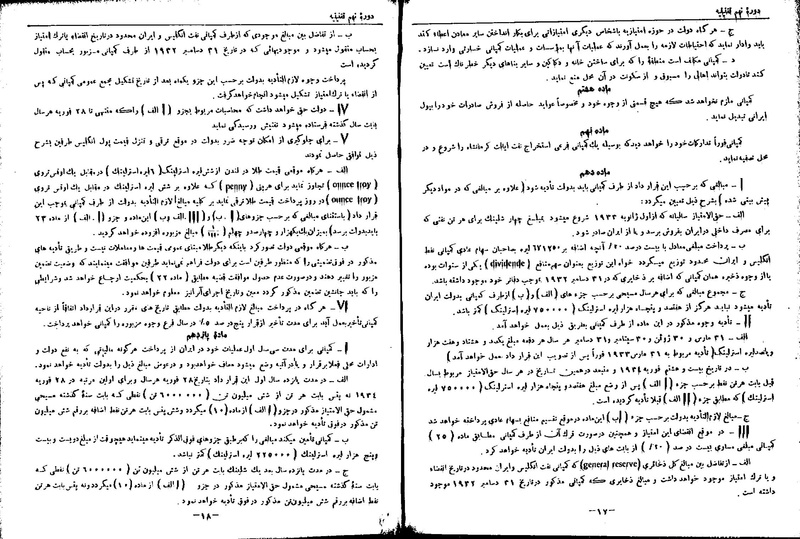 دورهٔ نهم تقنینیه
ج ـ هرگاه دولت در حوزه امتیازیه باشخاص دیگری امتیازاتی برای بکار انداختن سایر معادن اعطاء کند
باید وادار نماید که احتیاطات لازمه را بعمل آورند که عملیات آنها بمؤسسات و عملیات کمپانی خسارتی وارد نسازد .
د ـ کمپانی مکلف است منطقهٔ را که برای ساختن خانه و دکاکین و سایر بناهای دیگر خطرناک است تعیین
کند تا دولت بتواند اهالی را مسبوق و از سکونت در آن محل منع نماید .
ماده هشتم
کمپانی ملزم نخواهد شد که هیچ قسمتی از وجوه خود و مخصوصاً عواید حاصله از فروش صادرات خود را بپول
ایرانی تبدیل نماید
ماده نهم
کمپانی فوراً تدارکات خود را خواهد دید که بوسیله یک کمپانی فرعی استخراج نفت ایالت کرمانشاه را شروع و در
محل تصفیه نماید .
ماده دهم
I ـ مبالغی که برحسب این قرار داد از طرف کمپانی باید بدولت تأدیه شود ( علاوه بر مبالغی که در مواد دیگر
پیش بینی شده ) بشرح ذیل تعیین میگردد :
الف ـ حق‌الامتیاز سالیانه که از اول ژانویه ۱۹۳۳ شروع میشود بمبلغ چهار شلینگ برای هر تن نفتی که
برای مصرف داخلی در ایران بفروش برسد و یا از ایران صادر شود .
ب ـ پرداخت مبلغی معادل با بیست درصد ۲۰٪ آنچه اضافه بر ۶۷۱۲۵۰ لیره بصاحبان سهام عادی کمپانی نفط
انگلیس و ایران محدود توزیع میگردد خواه این توزیع بعنوان سهم منافع (dividende) یکی از سنوات بوده
یا از وجوه ذخیره همان کمپانی که اضافه بر ذخایری که در ۳۱ دسامبر ۱۹۳۲ بموجب دفاتر خود موجود داشته باشد.
ج ـ مجموع مبالغی که برای هر سال مسیحی برحسب جزء های ( الف ) و ( ب ) از طرف کمپانی بدولت ایران
تأدیه میشود نباید هرگز از هفتصد و پنجاه هزار لیره استرلینگ ( ۷۵۰۰۰۰ لیره استرلینگ ) کمتر باشد.
II ـ تأدیه وجوه مذکور در این ماده از طرف کمپانی بطریق ذیل بعمل خواهد آمد .
الف ـ ۳۱ مارس و ۳۰ ژوئن و ۳۰ سپتامبر و ۳۱ دسامبر هر سال هر دفعه مبلغ یکصد و هشتاد و هفت هزار
و پانصد لیره استرلینگ ( تأدیه مربوط به ۳۱ مارس ۱۹۳۳ فوراً پس از تصویب این قرار داد بعمل خواهد آمد )
ب ـ در تاریخ بیست و هشتم فوریه ۱۹۳۴ و بعد در همین تاریخ در هر سال حق‌الامتیاز مربوط بسال
قبل بابت هر تن نفط برحسب جزء (I الف ) پس از وضع مبلغ هفتصد و پنجاه هزار لیره استرلینگ ( ۷۵۰۰۰۰ لیره
استرلینگ ) که مطابق جزء ( II الف ) قبلا تأدیه گردیده است .
ج ـ مبالغ لازم‌التأدیه بدولت برحسب جزء ( I ب ) این ماده در موقع تقسیم منافع بسهام عادی پرداخته خواهد شد
III ـ در موقع انقضای این امتیاز و همچنین در صورت ترک آن از طرف کمپانی مطابق ماده ( ۲۵ )
کمپانی مبلغی مساوی بیست در صد ( ۲۰٪ ) از بابت های ذیل را بدولت ایران تأدیه خواهد کرد .
الف ـ از تفاضل بین مبالغ کل ذخائری (general reserve) که کمپانی نفت انگلیس و ایران محدود در تاریخ انقضاء
و یا ترک امتیاز موجود خواهد داشت و مبالغ ذخایری که کمپانی مذکور در تاریخ ۳۱ دسامبر ۱۹۳۲ موجود
داشته است .
ـ ۱۷ ـ
دورهٔ نهم تقنینیه
ب ـ از تفاضل بین مبالغ موجودی که از طرف کمپانی نفت انگلیس و ایران محدود در تاریخ انقضاء یا ترک امتیاز
بحساب منقول میشود و موجودیهائی که در تاریخ ۳۱ دسامبر ۱۹۳۲ از طرف کمپانی مزبور بحساب منقول
گردیده است
پرداخت وجوه لازم‌التأدیه بدولت برحسب این جزو یکماه بعد از تاریخ تشکیل مجمع عمومی کمپانی که پس
از انقضاء یا ترک امتیاز تشکیل میشود انجام خواهد گرفت .
IV ـ دولت حق خواهد داشت که محاسبات مربوط بجزو ( I الف ) را که منتهی تا ۲۸ فوریه هر سال
بابت سال گذشته فرستاده میشود تفتیش و رسیدگی نماید
V ـ برای جلوگیری از امکان توجه ضرر بدولت در موقع ترقی و تنزل قیمت پول انگلیس طرفین بشرح
ذیل توافق حاصل نمودند
الف ـ هرگاه موقعی قیمت طلا در لندن از شش لیره استرلینگ ( ۶ لیره استرلینگ ) در مقابل یک اونس تروی
(ounce troy) تجاوز نماید برای هر پنی (penny) که علاوه بر شش لیره استرلینگ در مقابل یک اونس تروی
(ounce troy) در روز پرداخت قیمت طلا ترقی نماید بر کلیه مبالغ لازم‌التأدیه بدولت از طرف کمپانی بموجب این
قرار داد ( باستثنای مبالغی که برحسب جزوهای ( I ـ ب ) و ( III الف و ب ) این ماده و جزو ( I ـ الف ) از ماده ۲۳
باید بدولت برسد ) بمیزان یک هزار و چهارصد و چهلم مبالغ مزبوره افزوده خواهد گردید .
ب ـ هرگاه موقعی دولت تصور کرد باینکه دیگر طلا مبنای عمومی قیمت ها و معاملات نیست و طریقی تأدیه های
مذکور در فوق تضمیناتی را که منظور طرفین است برای دولت فراهم نمی‌نماید طرفین موافقت مینمایند که وضعیت تضمین
مزبور را تغییر دهند و در صورت عدم حصول موافقت قضیه مطابق ( ماده ۲۲ ) بحکمیت ارجاع خواهد شد و شرایطی
را که باید جانشین تضمین مذکور گردد معین و تاریخ اجرای آنرا نیز معلوم خواهد نمود .
VI ـ هرگاه در پرداخت مبالغ لازم التأدیه بدولت مطابق تاریخ های مقرر در این قرارداد اتفاقاً از ناحیه
کمپانی تأخیر بعمل آید برای مدت تأخیر از قرار پنج در صد ۵٪ در سال فرع وجوه مزبوره را کمپانی خواهد پرداخت.
مادهٔ یازدهم
I ـ کمپانی برای مدت سی سال اول عملیات خود در ایران از پرداخت هرگونه مالیاتی که به نفع دولت و
ادارات محلی فعلا برقرار و یا در آتیه وضع میشود معاف خواهد بود و در عوض مبالغ ذیل را بدولت تأدیه خواهد نمود .
الف ـ در مدت پانزده سال اول این قرار داد بتاریخ ۲۸ فوریه هر سال و برای اولین مرتبه در ۲۸ فوریه
۱۹۳۴ نه پنس بابت هر تن از شش میلیون تن ( ۶۰۰۰۰۰۰ تن ) نفطی که بابت سنهٔ گذشته مسیحی
مشمول حق الامتیاز مذکور در جزو ( I الف ) از ماده ( ۱۰ ) میگردد و شش پنس بابت هر تن نفط اضافه بر رقم شش میلیون
تن مذکور در فوق تأدیه خواهد نمود.
ب ـ کمپانی تأمین میکند مبالغی را که بر طبق جزوهای فوق‌الذکر تأدیه مینماید هیچوقت از مبلغ دویست و بیست
و پنج هزار لیره استرلینگ ( ۲۲۵۰۰۰ لیره استرلینگ ) کمتر نباشد.
ج ـ در مدت پانزده سال بعد یک شلینگ بابت هر تن از شش میلیون تن ( ۶۰۰۰۰۰۰ تن ) نفطی که
بابت سنهٔ گذشته مسیحی مشمول حق الامتیاز مذکور در جزو ( I الف ) از ماده ( ۱۰ ) میگردد و نه پنس بابت هر تن
نفط اضافه بر رقم شش میلیون تن مذکور در فوق تأدیه خواهد نمود .
ـ ۱۸ ـ